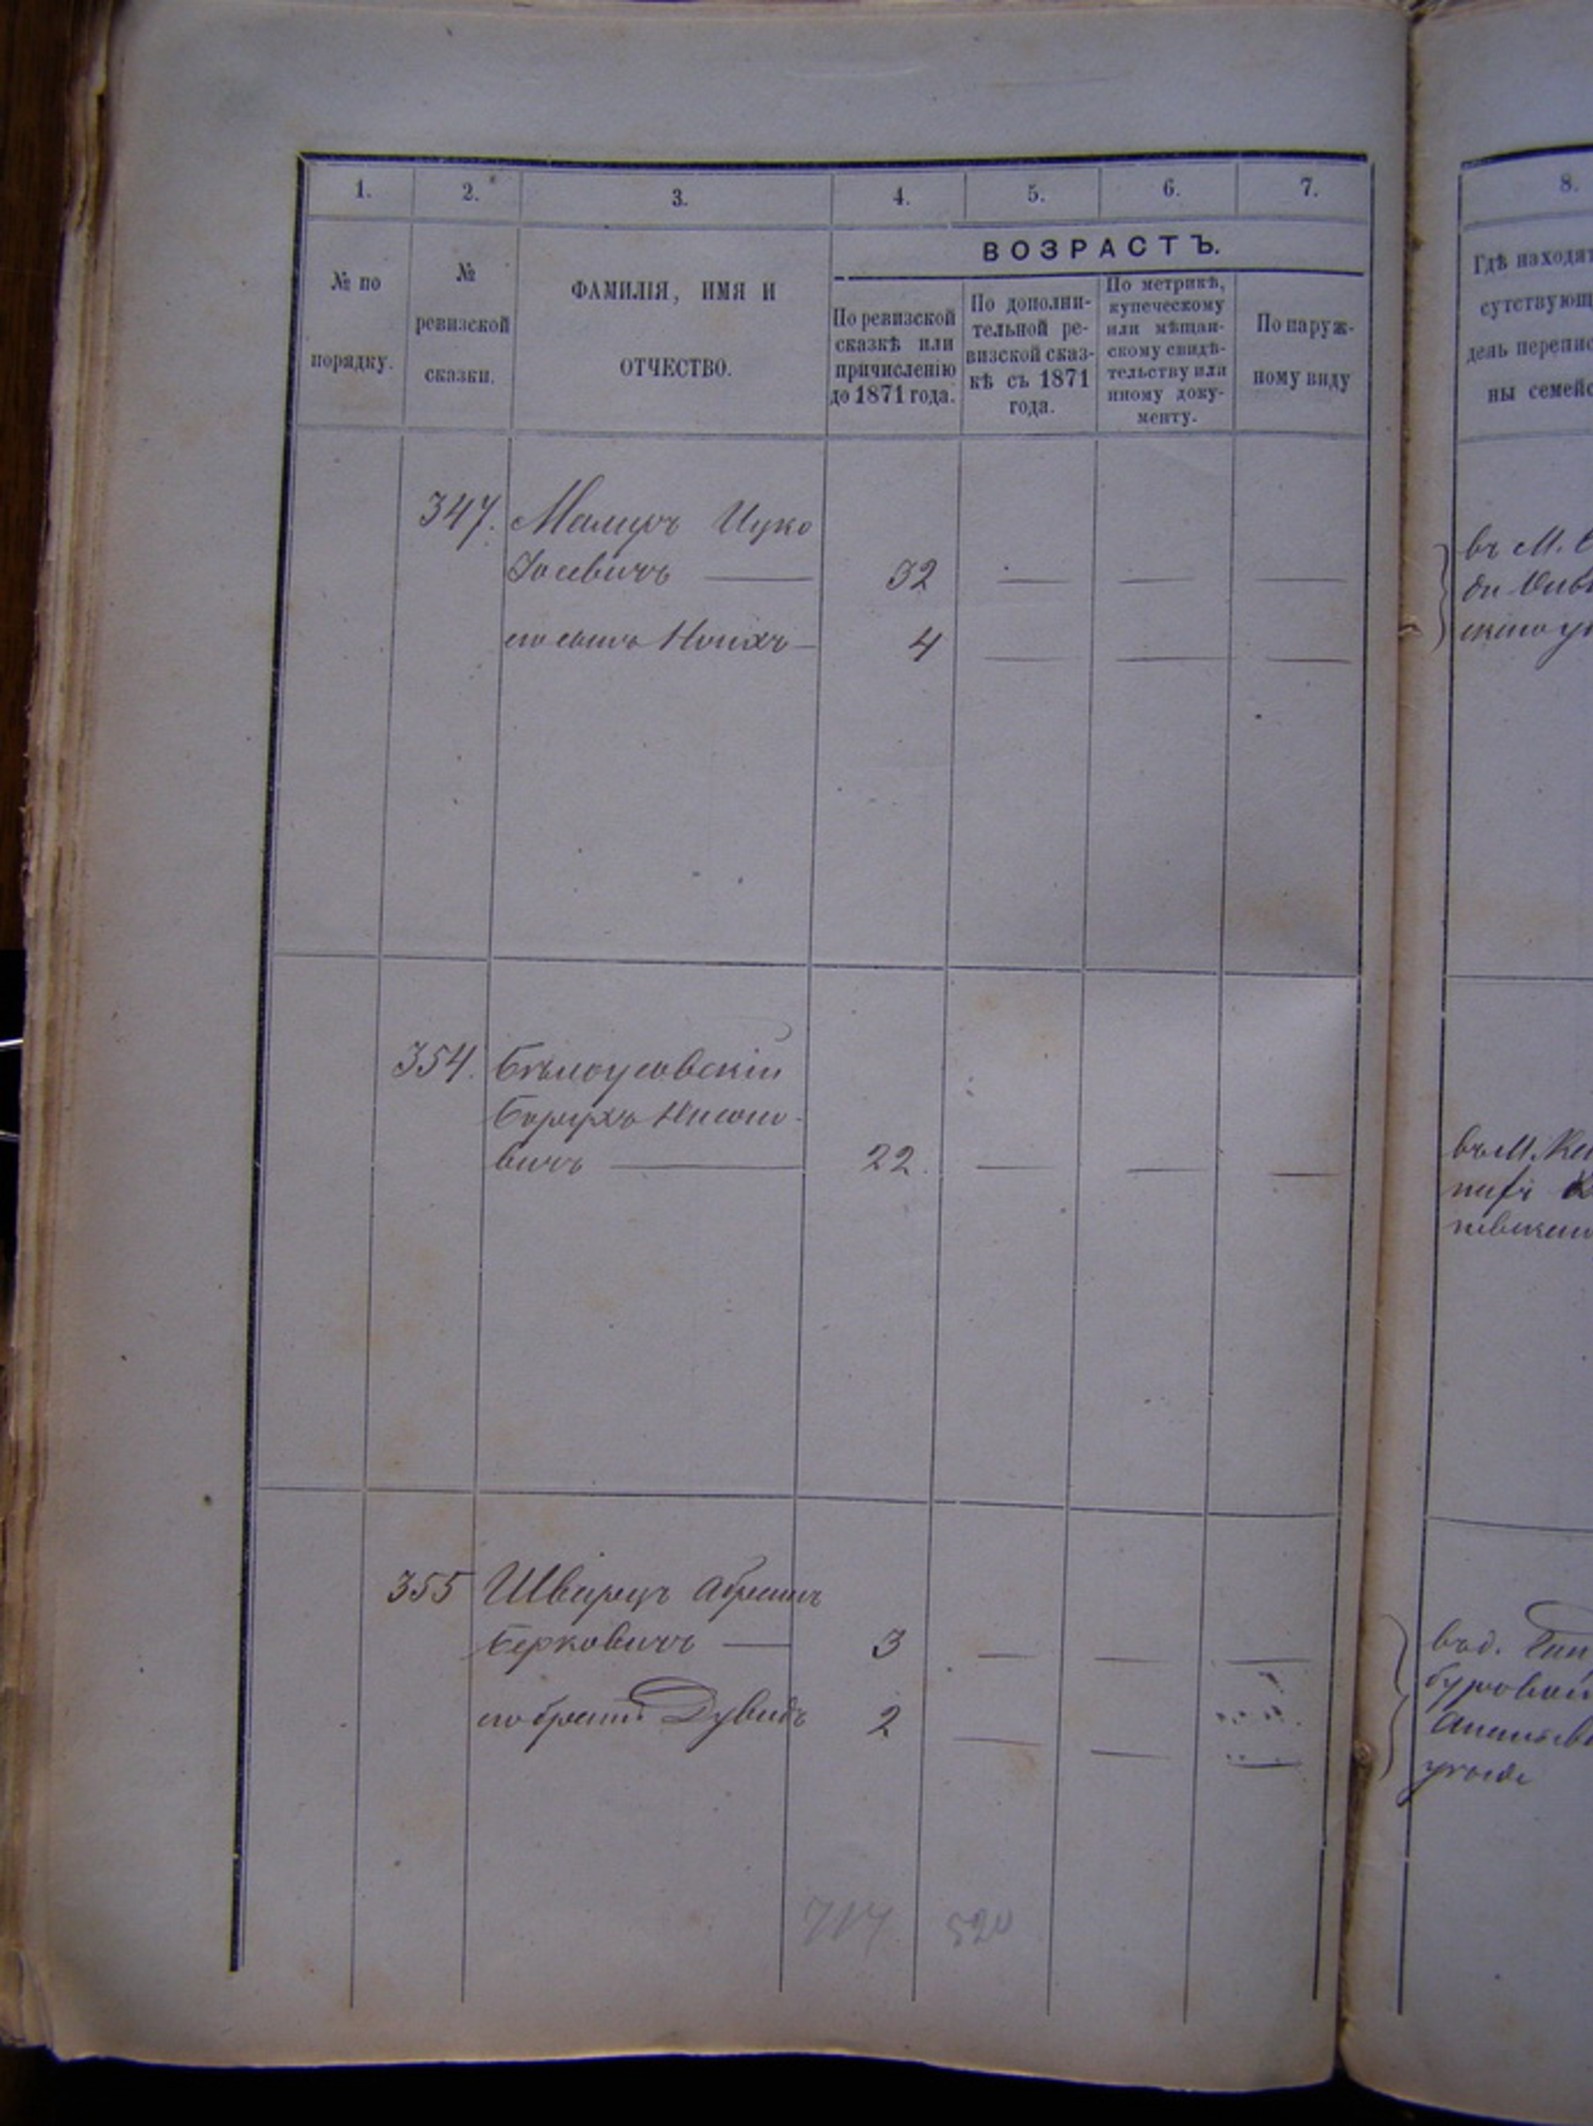 1. 2. 3. 4. 5. 6. 7. 8.
№ по порядку.
№ ревизской сказки.
ФАМИЛІЯ, ИМЯ И
ОТЧЕСТВО.
ВОЗРАСТЪ.
По ревизской
сказкѣ или
причисленію
до 1871 года.
По дополни-
тельной ре-
визской сказ-
кѣ съ 1871
года.
По метрикѣ,
купеческому
или мѣщан-
скому свидѣ-
тельству или
иному доку-
менту.
По наруж-
ному виду
Гдѣ находят
сутствующ
день перепис
ны семейс
347. Ицко
Іосевичъ — 32 — — —
его сынъ — 4 — — —
въ М.
354. Бѣлоусовскій
Борухъ Нисоно-
вичъ — 22. — — —
въ М.
355 Шварцъ Абрамъ
Берковичъ — 3 — — —
его братъ Дувидъ 2 — — —
въ д.
Ананьев
уѣзде
520